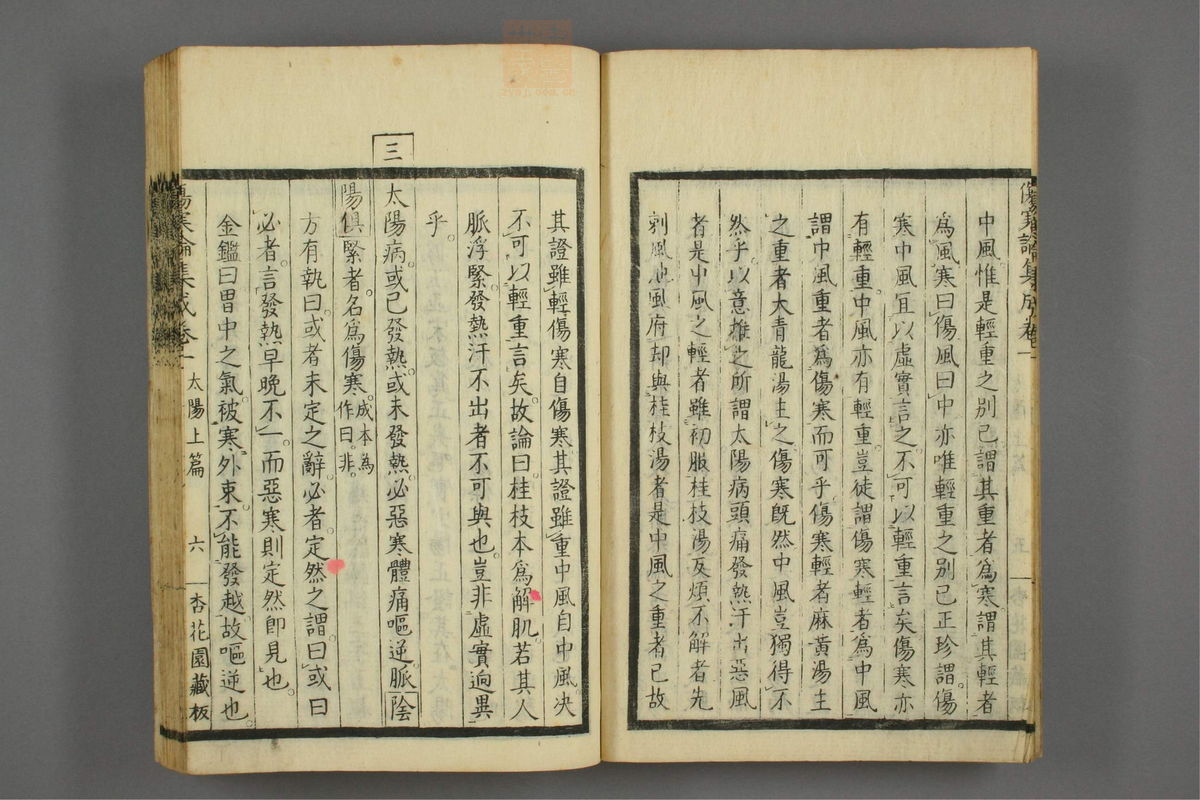 中風惟是輕重之別已謂其重者爲寒謂其輕者
爲風寒曰傷風曰中亦唯輕重之別已正珍謂傷
寒中風宜以虛實言之不可以輕重言矣傷寒亦
有輕重中風亦有輕重豈徒謂傷寒輕者爲中風
謂中風重者爲傷寒而可乎傷寒輕者麻黃湯主
之重者大青龍湯主之傷寒既然中風豈獨得不
然乎以意推之所謂太陽病頭痛發熱汗出惡風
者是中風之輕者雖初服桂枝湯反煩不解者先
刺風池風府却與桂枝湯者是中風之重者已故
傷寒論集成卷一
其證雖輕傷寒自傷寒其證雖重中風自中風決
不可以輕重言矣故論曰桂枝本爲解肌若其人
脈浮緊發熱汗不出者不可與也豈非虛實逈異
乎
三
太陽病或已發熱或未發熱必惡寒體痛嘔逆脈陰
陽俱緊者名爲傷寒成本爲作曰非
方有執曰或者未定之辭必者定然之謂曰或曰
必者言發熱早晚不一而惡寒則定然即見也
金鑑曰胃中之氣被寒外束不能發越故嘔逆也
傷寒論集成卷一 太陽上篇 六 杏花園藏板